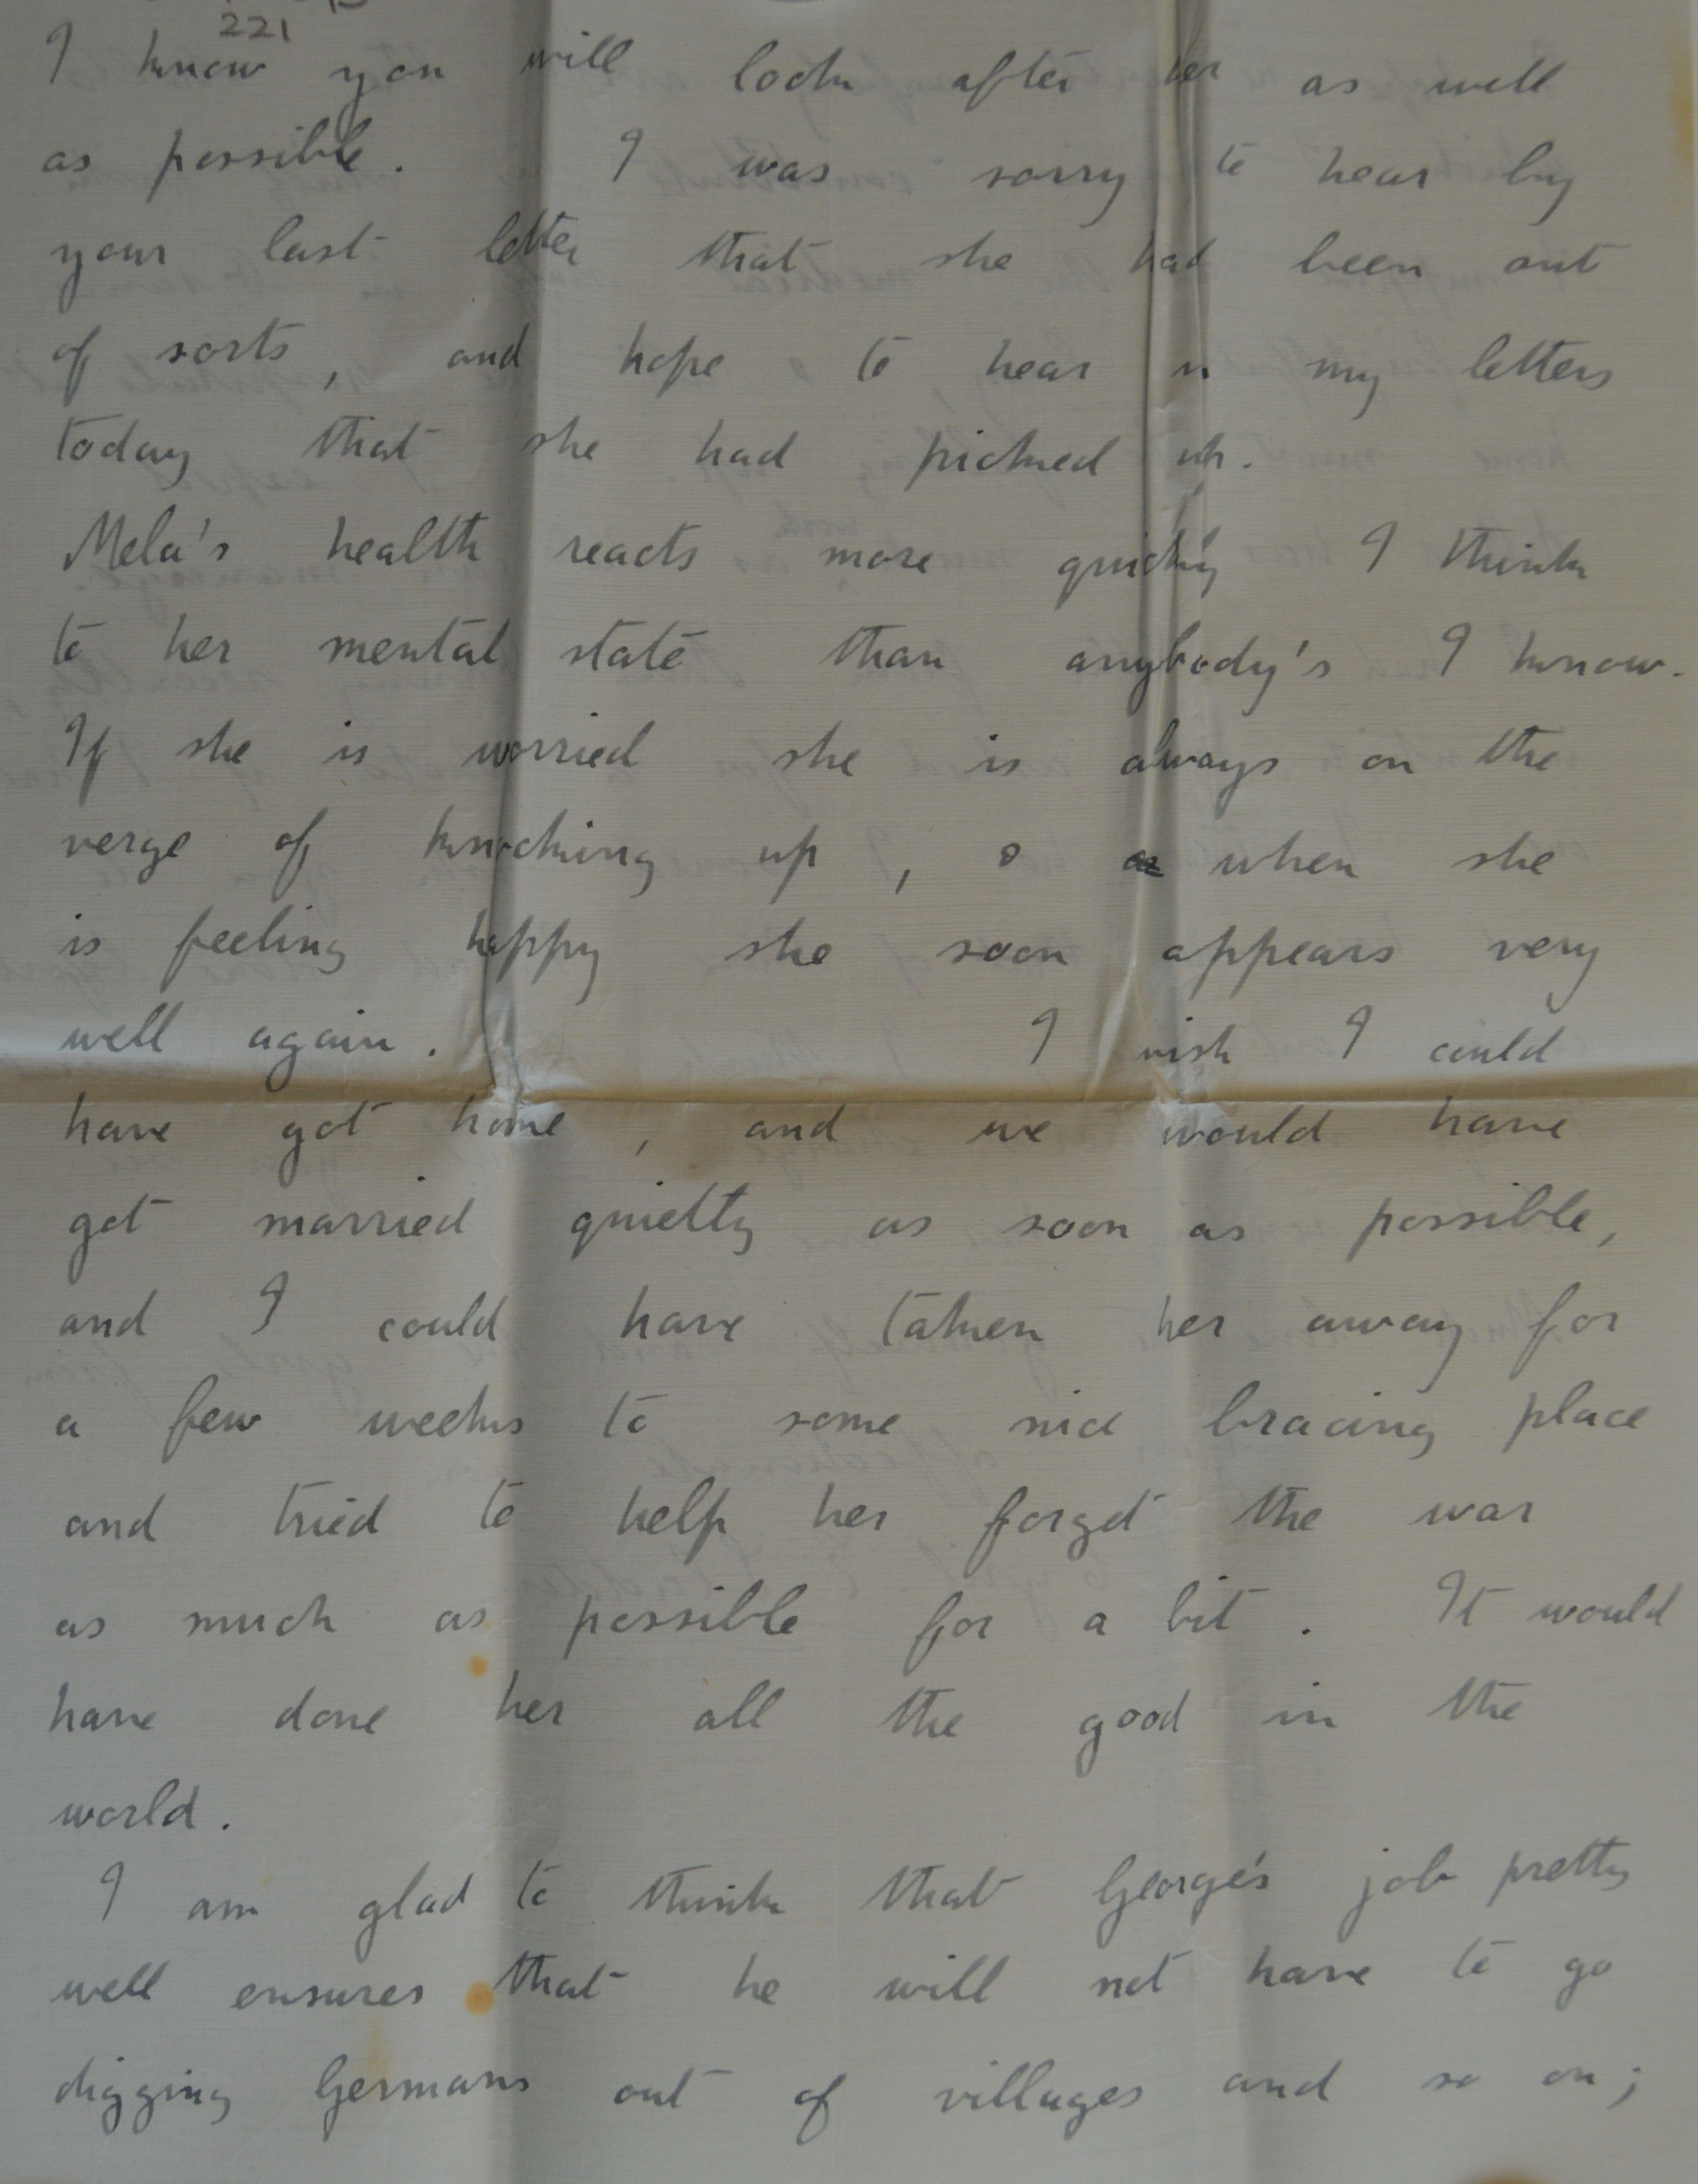 221
I know you will look after her as well
as possible. I was sorry to hear by
your last letter that she had been out
of sorts, and hope to hear in my letters
today that she had picked up.
Mela's health reacts more quickly I think
to her mental state than anybody's I know.
If she is worried she is always on the
verge of knocking up, & when she
is feeling happy she soon appears very
well again. I wish I could
have got home, and we would have
got married quietly as soon as possible,
and I could have taken her away for
a few weeks to some nice bracing place
and tried to help her forget the war
as much as possible for a bit. It would
have done her all the good in the
world.
I am glad to think that George's job pretty
well ensures that he will not have to go
digging Germans out of villages and so on;